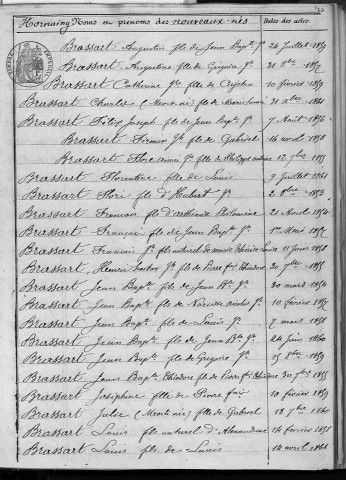 30
Hornaing Noms et prénoms des nouveaux-nés Dates des actes
Brassart Augustin fils de Jean Bapte Jh 24 Juillet 1859
Brassart Augustine fille de Grégoire Jh 31 8bre 1857
Brassart Catherine Jh fille de Crépin 10 février 1859
Brassart Charles (Mort-né) fils de 31 1861
Brassart Félix Joseph fils de Jean Bapte Jh 7 Août 1858
Brassart Firmin Jh fils de Gabriel 14 avril 1858
Brassart fille de Philippe 12 7bre 1855
Brassart Florentine fille de Louis 9 Juillet 1861
Brassart Flori fils d'Hubert Jh 2 8bre 1853
Brassart François fils d' 21 Avril 1854
Brassart François fils de Jean Bapte Jh 1er Mai 1858
Brassart François Jh fils naturel de 11 Juin 1858
Brassart Henri fils de Pierre fois Théodore 20 7bre 1857
Brassart Jean Bapte fils de Jean Bte Jh 30 mars 1854
Brassart Jean Bapte fils de Narcisse 10 février 1857
Brassart Jean Bapte fils de Louis Jh 7 mars 1858
Brassart Jean Bapte fils de Jean Bte Jh 24 Juin 1860
Brassart Jean Bapte fils de Grégoire Jh 15 8bre 1859
Brassart Jean Bapte Théodore fils de Pierre fois Théodore 30 7bre 1855
Brassart Joséphine fille de Pierre fois 10 février 1859
Brassart Julie (Mort née) fille de Gabriel 18 7bre 1860
Brassart Louis fils naturel d'Alexandrine 14 février 1858
Brassart Louis fils de Louis 14 avril 1861